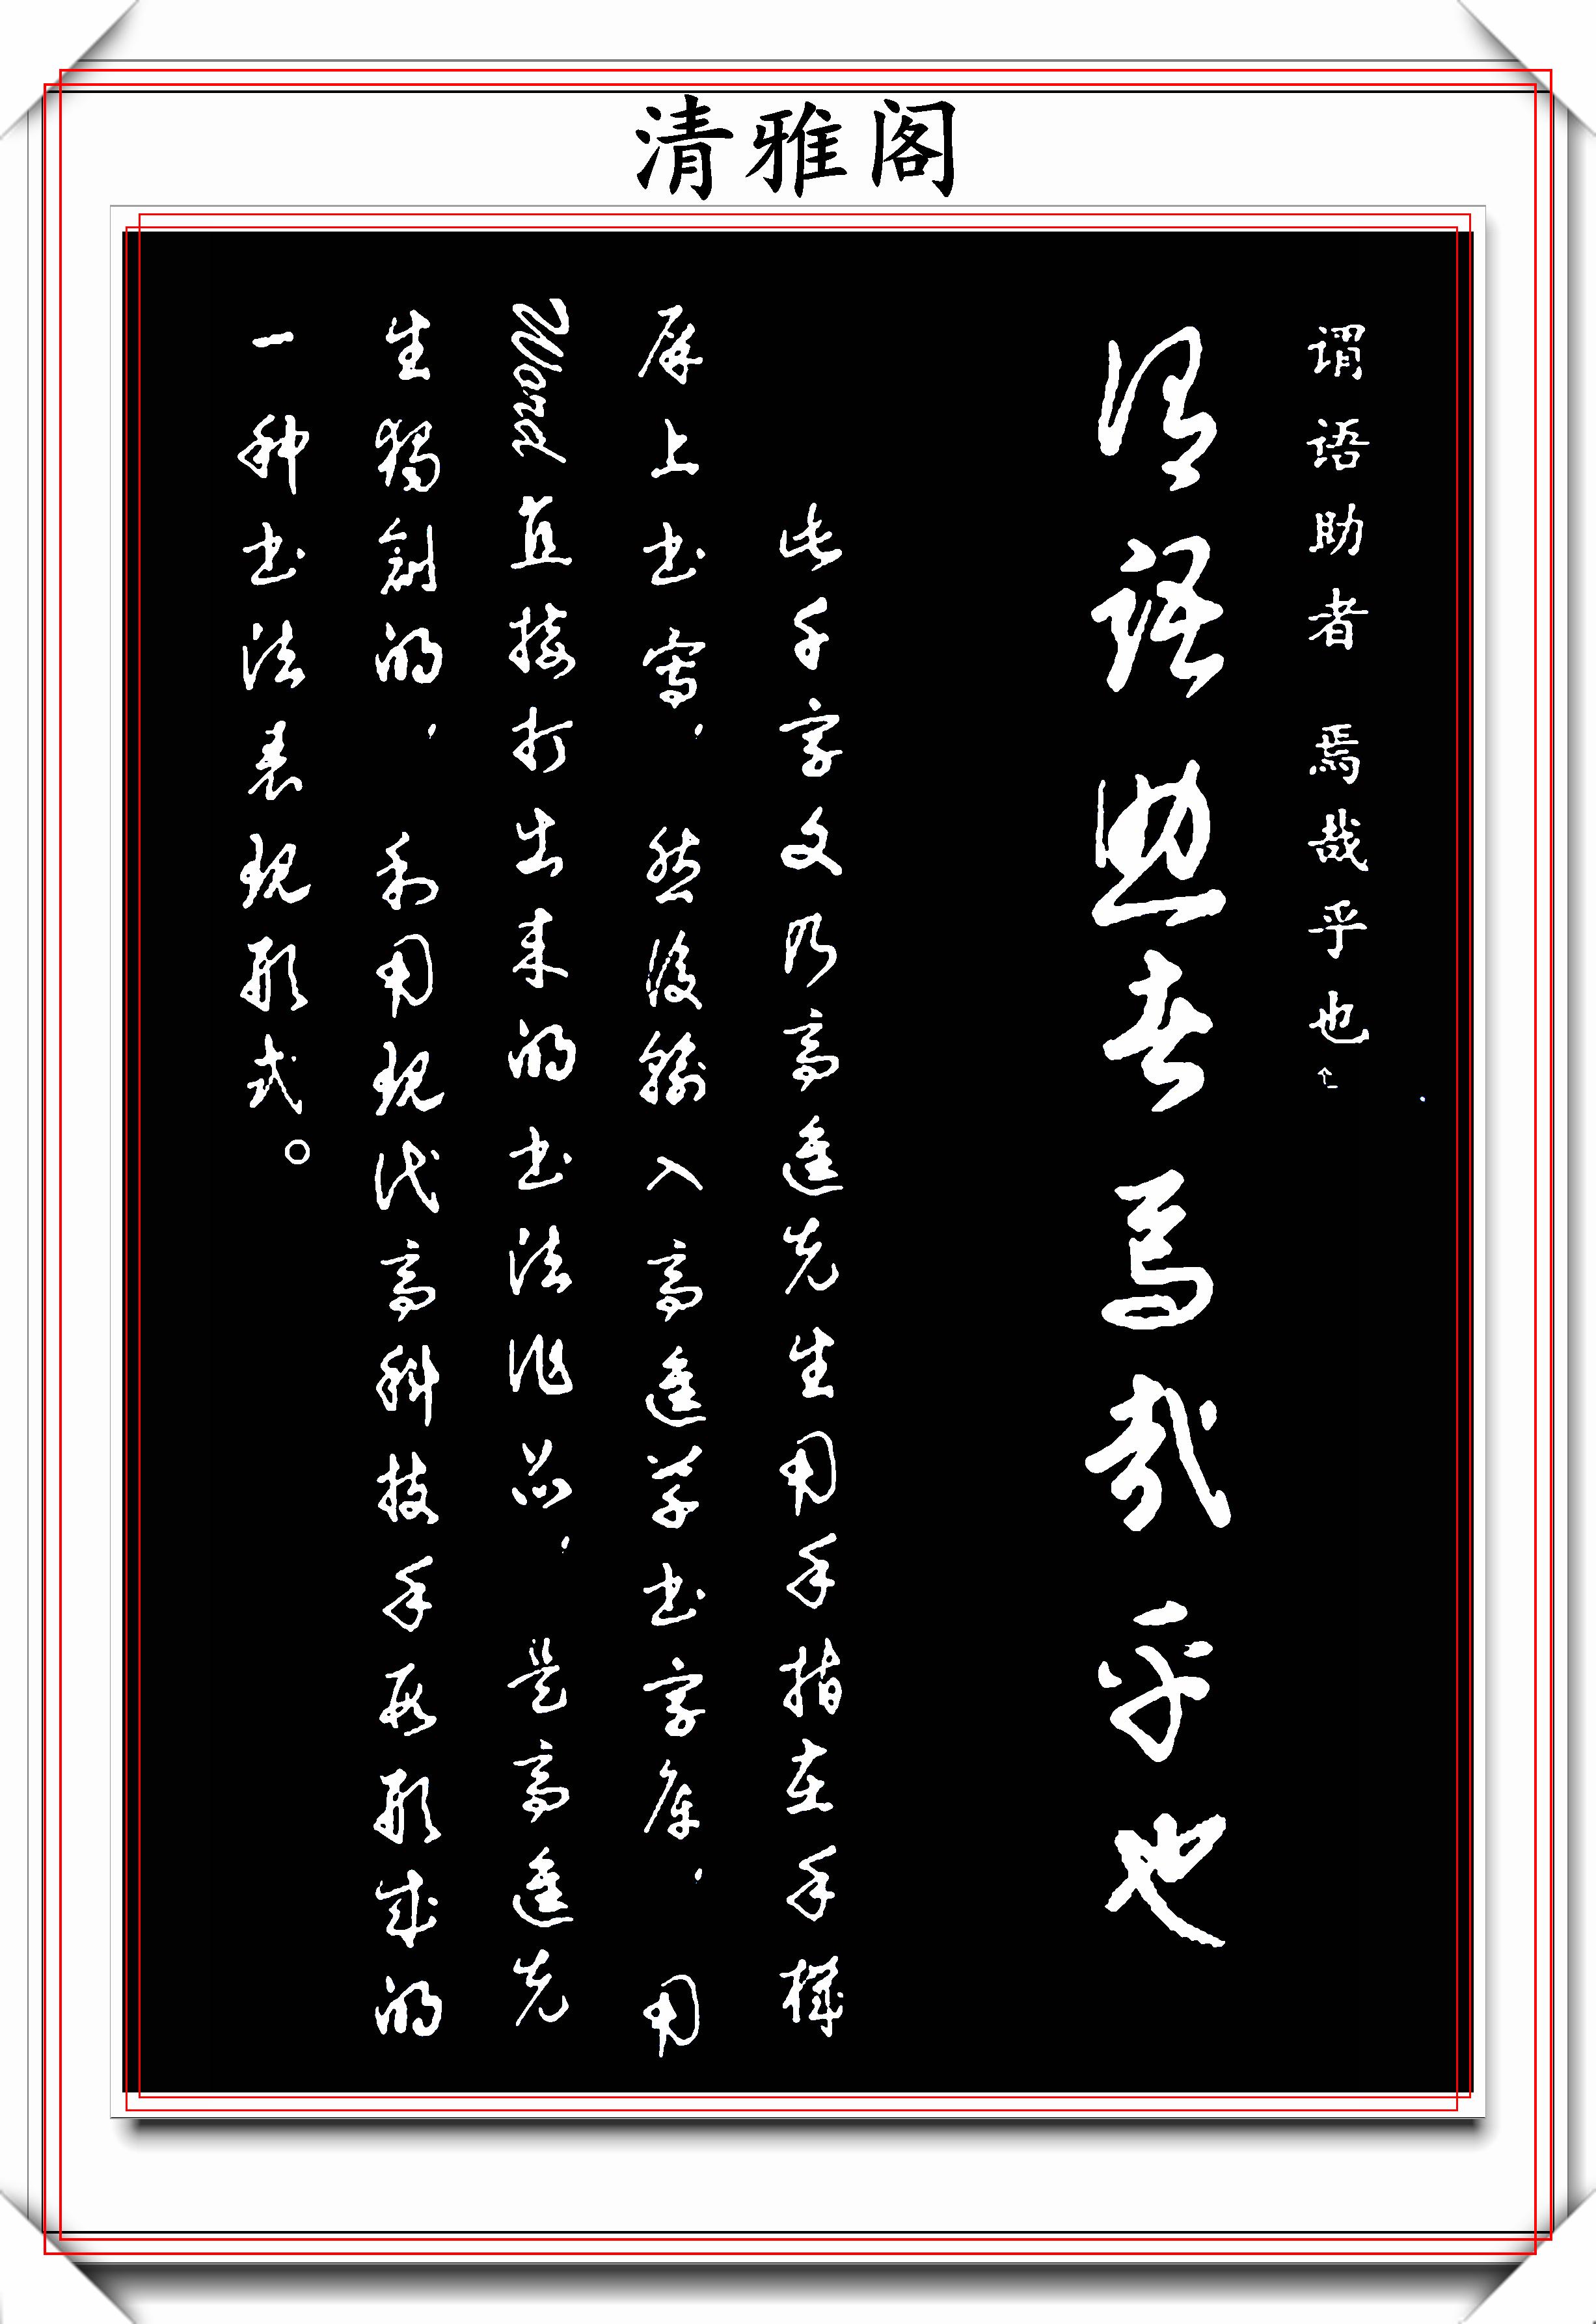 清雅阁
谓语助者 焉哉乎也
谓語助者焉哉乎也
此千字文乃高進先生用手指在手機
屏上书寫，然後輸入高進草书字库，用
Word直接打出来的书法作品，是高進先
生獨創的，利用现代高科技手段形成的
一种书法表现形式。